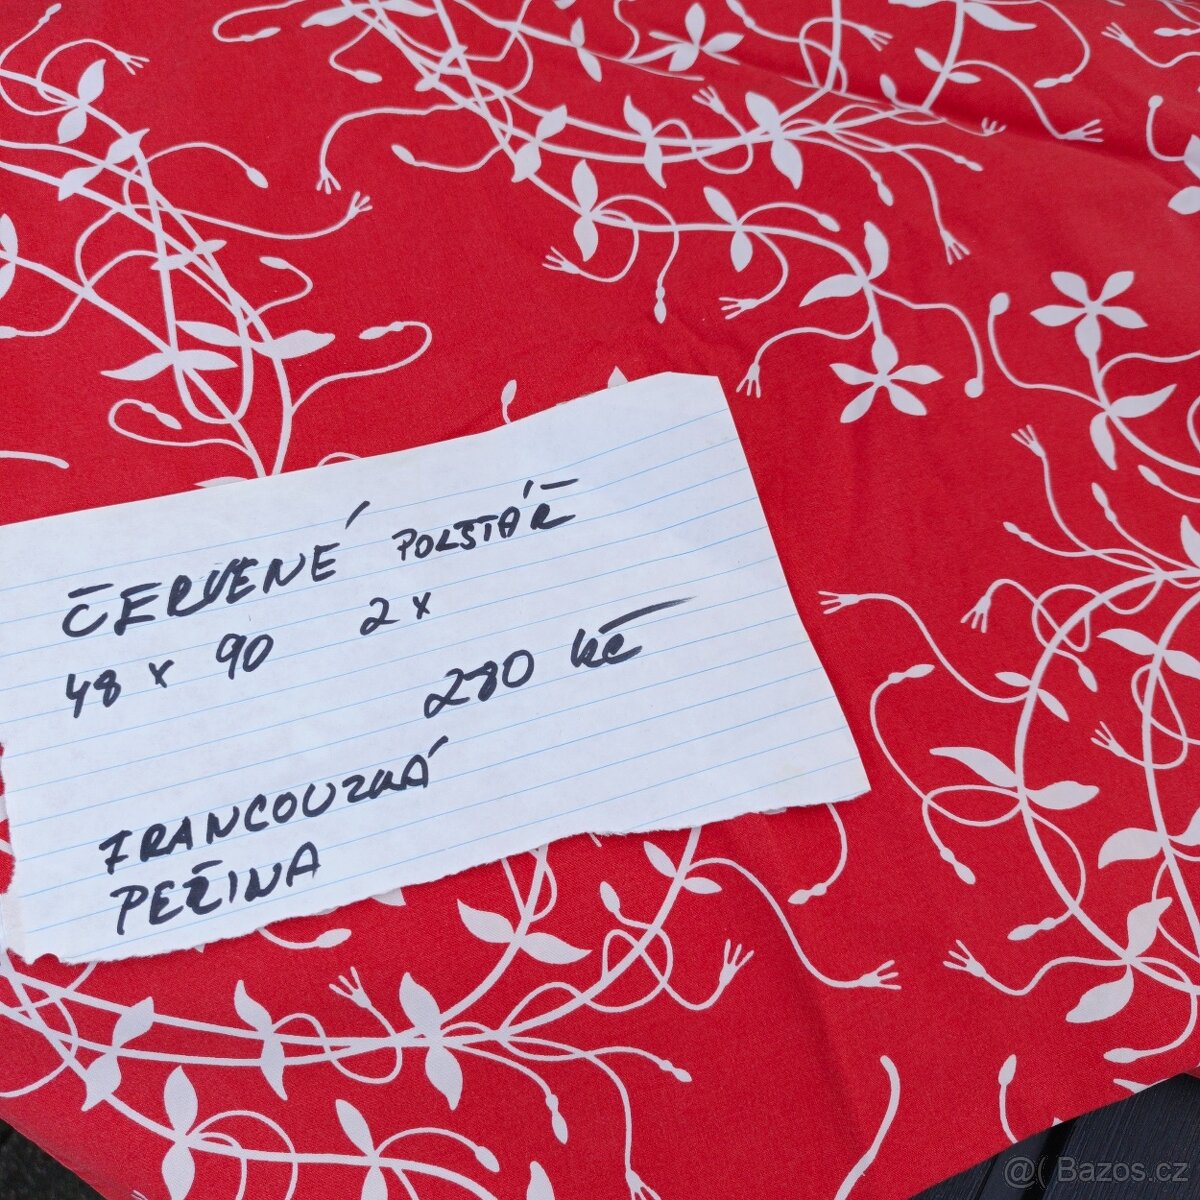 ČERVENÉ POLSTÁŘ
48 x 90 2x
280 kč
FRANCOUZKÁ
PEŽINA
@( Bazos.cz